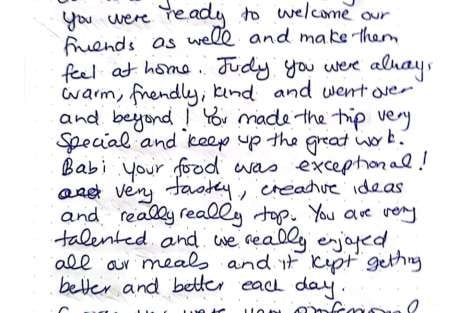 You were ready to welcome our
friends as well and make them
feel at home. Judy you were always
warm, friendly, kind and went over
and beyond! You made the trip very
special and keep up the great work.
Babi your food was exceptional!
and very tastey, creative ideas
and really really top. You are very
talented and we really enjoyed
all our meals and it kept getting
better and better each day.